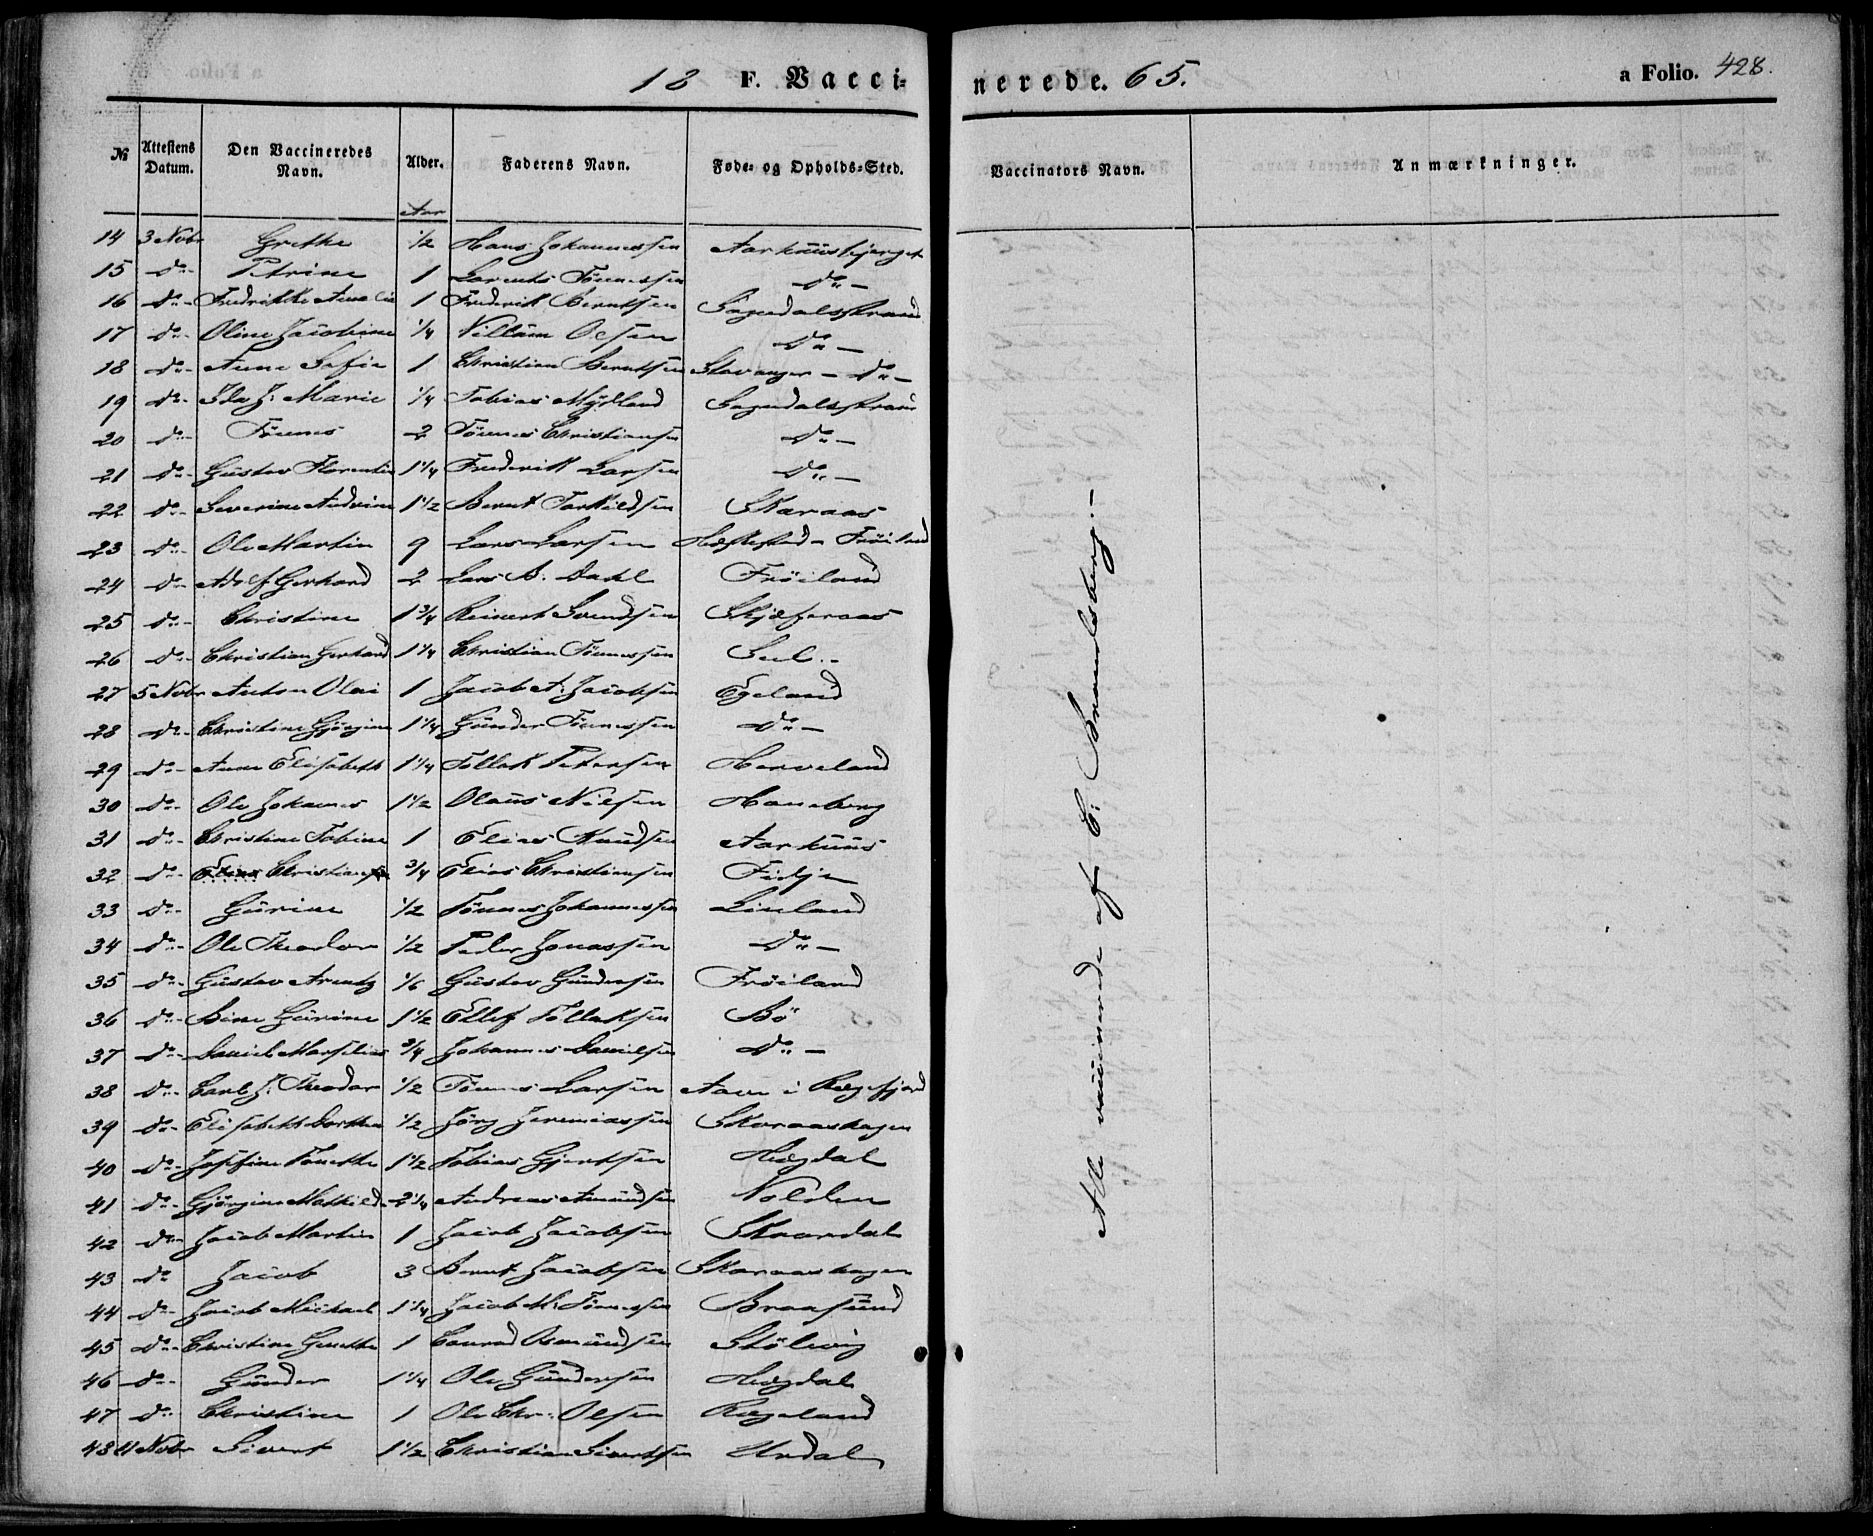 18 F. Vaccinerede. 65. a Folio. 428.
№ Attestens Datum. Den Vaccineredes Navn. Alder. Faderens Navn. Føde- og Opholds-Sted. Vaccinators Navn. Anmærkninger.
Aar
14 3 Novbr Grethe 1/2 Hans Johannessen Aarhuusbjerget
15 do Petrine 1 Larents Tønnessen do
16 do Fredrikke 1 Frederik Berntsen Sogndalsstrand
17 do Oline Jacobine 1/4 Villum Olsen do
18 do Anne Sofie 1 Christian Berntsen Stavanger - do
19 do Ida J. Marie 1/4 Tobias Mydland Sogndalsstrand
20 do Tønnes 2 Tønnes Christiansen do
21 do Gustav Florentin 1 1/4 Frederik Larsen do
22 do Severine Andrine 1 1/2 Bernt Torkildsen Skaraas
23 do Ole Martin 9 Lars Larsen Hæstestad - Frøiland
24 do Adolf Gerhard 2 Lars B. Dahl Frøiland
25 do Christine 1 3/4 Reinert Svendsen Skjæferaas
26 do Christian Gerhard 1 1/4 Christian Tønnessen
27 5 Novbr Anton Olai 1 Jacob A. Jacobsen Egeland
28 do Christine Gjørgine 1 1/4 Gunder Tønnessen do
29 do Anne Elisabeth 1 1/4 Tollak Petersen Herveland
30 do Ole Johannes 1 1/2 Olaus Nilsen Haneberg
31 do Christine Tobine 1 Elias Knudsen Aarhuus
32 do Elias Christian 3/4 Elias Christiansen Fidje
33 do Gurine 1/2 Tønnes Johannessen Linland
34 do Ole Theodor 1/2 Peder Jonassen do
35 do Gustav Arentz 1/6 Gustav Gundersen Frøiland
36 do Bine Gurine 1 1/2 Ellef Tollaksen Bø
37 do Daniel Marselius 3/4 Johannes Danielsen do
38 do Carl J. Theodor 1/2 Tønnes Larsen Aavæ i Rægefjord
39 do Elisabeth Dorthea 1/2 Jørg Jeremiassen Skaraashagen
40 do Josfine Tonette 1 1/2 Tobias Gjertsen Hegdal
41 do Gjørgine Mathilde 2 1/4 Andreas Amundsen Nolden
42 do Jacob Martin 1 Jacob Jacobsen Skaardal
43 do Jacob 3 Bernt Jacobsen Skaraashagen
44 do Jacob Michael 1 1/4 Jacob M. Tønnessen Braasund
45 do Christine Gunette 1 Conrad Osmundsen Stølevig
46 do Gunder 1 1/4 Ole Gundersen Hegdal
47 do Christine 1 Ole Chr. Olsen Rægeland
48 11 Novbr Sivert 1 1/2 Christian Sivertsen Urdal
Alle vaccinerede af C: Brandsberg.